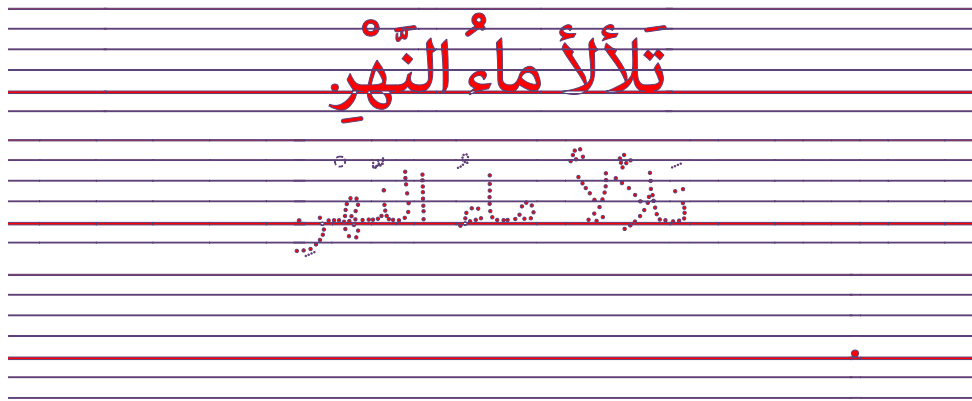 تَلألأ ماءُ النَّهْرِ
تَلألأ ماءُ النَّهْر